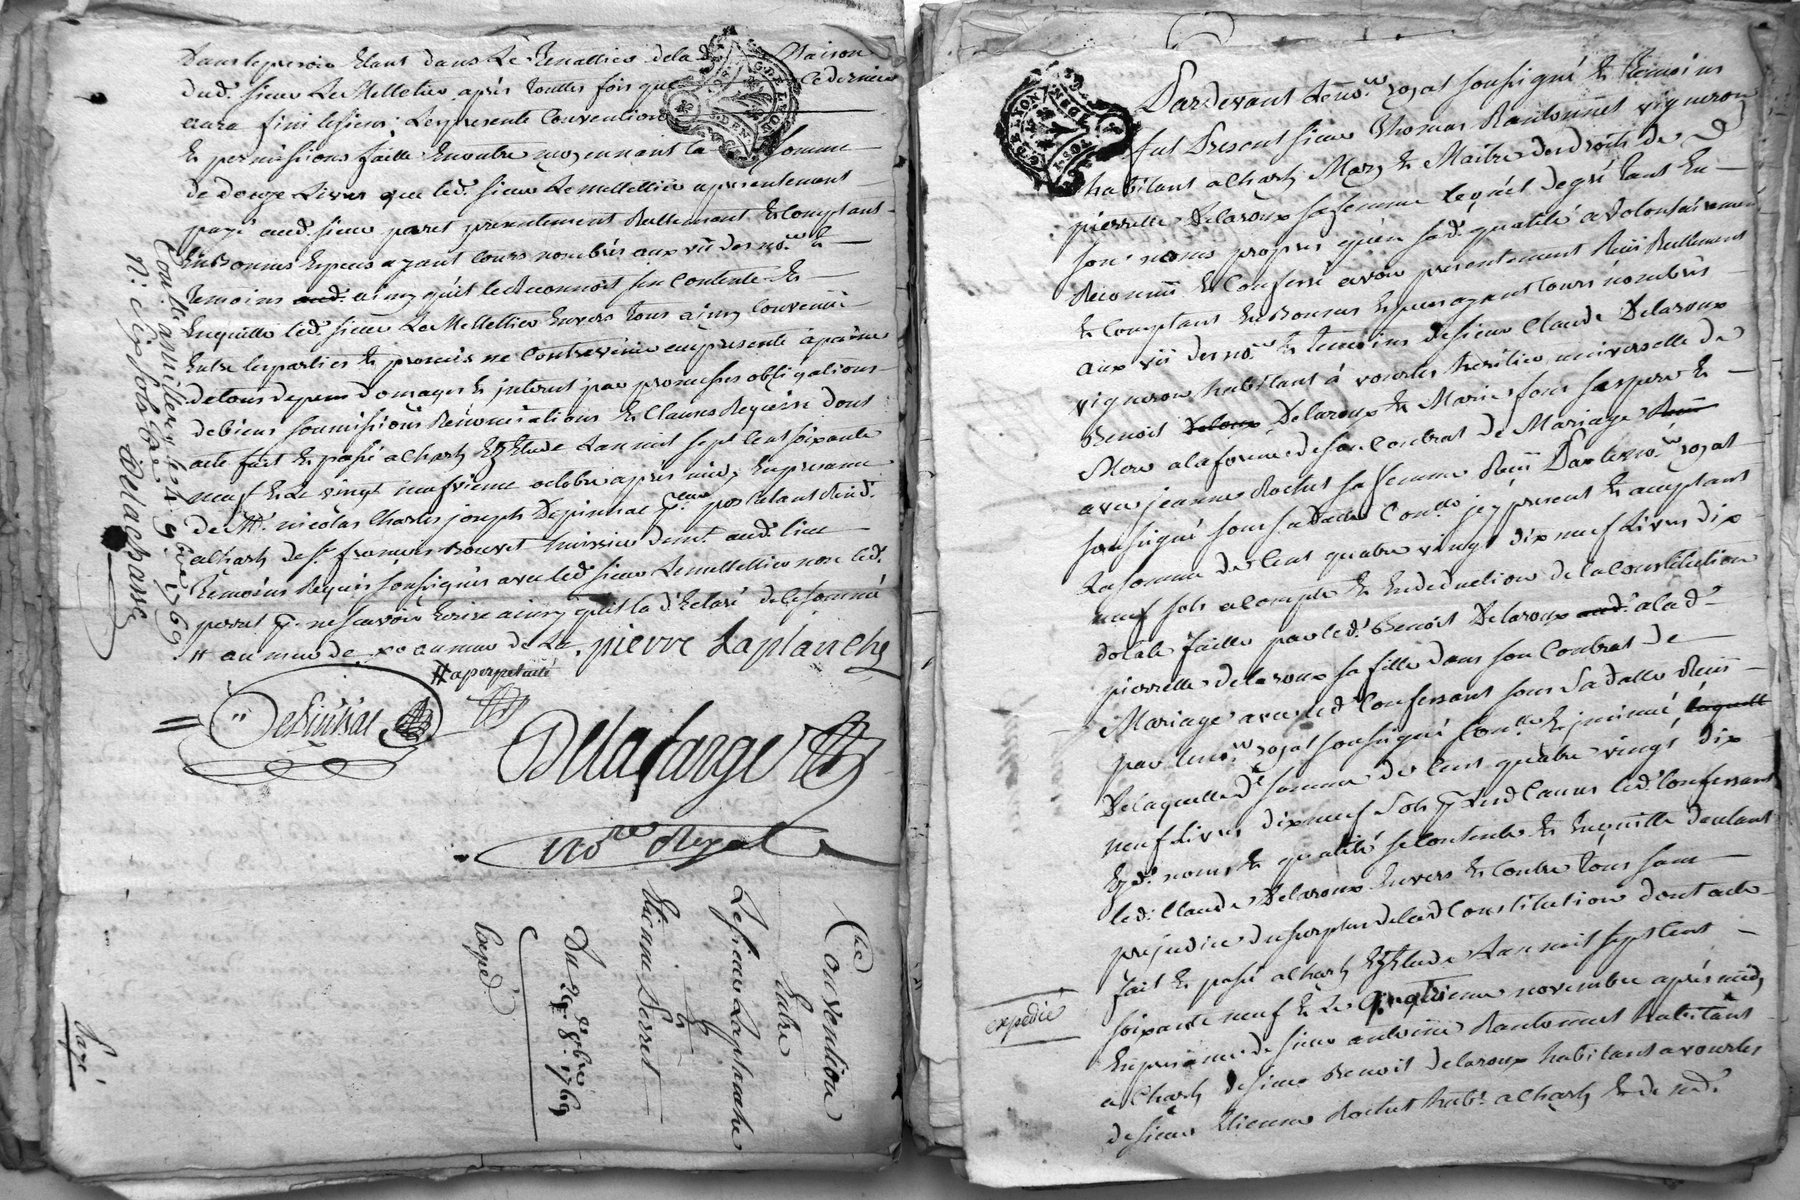 étant dans le de la Maison
dud. sieur Le Mellettier après touttes fois que ce dernier
aura fini le sien; le présente Convention
Et permissions faitte Enoutre moyennant la somme
de douze Livres que led. sieur Le mellettier a presentement
payé aud. sieur perret presentement Reellement Et Comptant
En Bonnes Especes ayant Cours nombrés aux vü des no.re &
Temoins aud. ainsy quil le Reconnoit sen Contente Et
Enquitte led. sieur Le Mellettier Envers tous ainsy Convenu
Entre les parties Et promis ne Contrevenir au présente à peine
de tous depens domages Et interest par promesses obligations
de biens soumissions Renonciations Et Clauses Requise Dont
acte fait Et passé a Charly Ez Etude Lan mil sept Cent soixante
neuf Et Le vingt neufvieme octobre après midy En presence
de M.e nicolas Charles joseph Depinsac postulant Resid.t
a Charly de s.r françois Bouvet huissier demt. aud. lieu
Témoins Requis soussignés avec led. sieur Le mellettier non led.
perret p.r ne scavoir Ecrire ainsy quil la déclaré de ce sommé
# au mur de au mur de La. pierre Laplanche
# a perpetuité
Depinsac
Delafarge
no.re Royal
Con.lé a millery le 9 9bre 1769
R: six sols
Delachave
Convention
Entre
Le sieur Laplanche
Et
Etienne Perret
Du 29e 8bre 1769
Expéd
Payé
Pardevant Le no.re royal soussigné Et Temoins
fut Present sieur Thomas Randonnet vigneron
habitant a Charly Mary Et Maitre des droits de
pierrette Delaroux sa femme lequel de gré tant En
son nom propres qu'en sad. qualité a volontairement
Reconnu Et Confessé avoir presentement Reçu Reellement
Et Comptant En Bonnes Especes ayant Cours nombrés
aux vü des no.re Et temoins de sieur Claude Delaroux
vigneron habitant à vourles heritier universelle de
Benoit Deloux Delaroux Et Marie fons ses pere Et
Mere a la forme de son Contrat de Mariage Reçu
avec jeanne Rochet sa femme Reçu Par le no.re royal
soussigné sous sa datte Con.lé icy present Et acceptant
La somme de Cent quatre vingt dix neuf Livres dix
neuf sols a compte Et En deduction de la Constitution
dotale faitte par led. Benoit Delaroux aud. a lad.
pierrette Delaroux sa fille dans son Contrat de
Mariage avec led. Confessant sous sa datte Reçu
par le no.re royal soussigné Con.lé Et jnsinué laquelle
De laquelle d.e somme de Cent quatre vingt dix
neuf Livres dix neuf sols p.r Led. Causes led. Confessant
Ezd. noms Et qualité se Contente Et Enquitte dautant
led. Claude Delaroux Envers Et Contre tous sans
prejudice du surplus de lad. Constitution dont acte
fait Et passé a Charly Ez Etude Lan mil sept Cent
soixante neuf Et Le cinquieme novembre après midy
expedié
En presence de sieur antoine Randonnet habitant
a Charly de sieur Benoit Delaroux habitant a vourles
de sieur Etienne Rochet habt. a Charly Et de sr d.